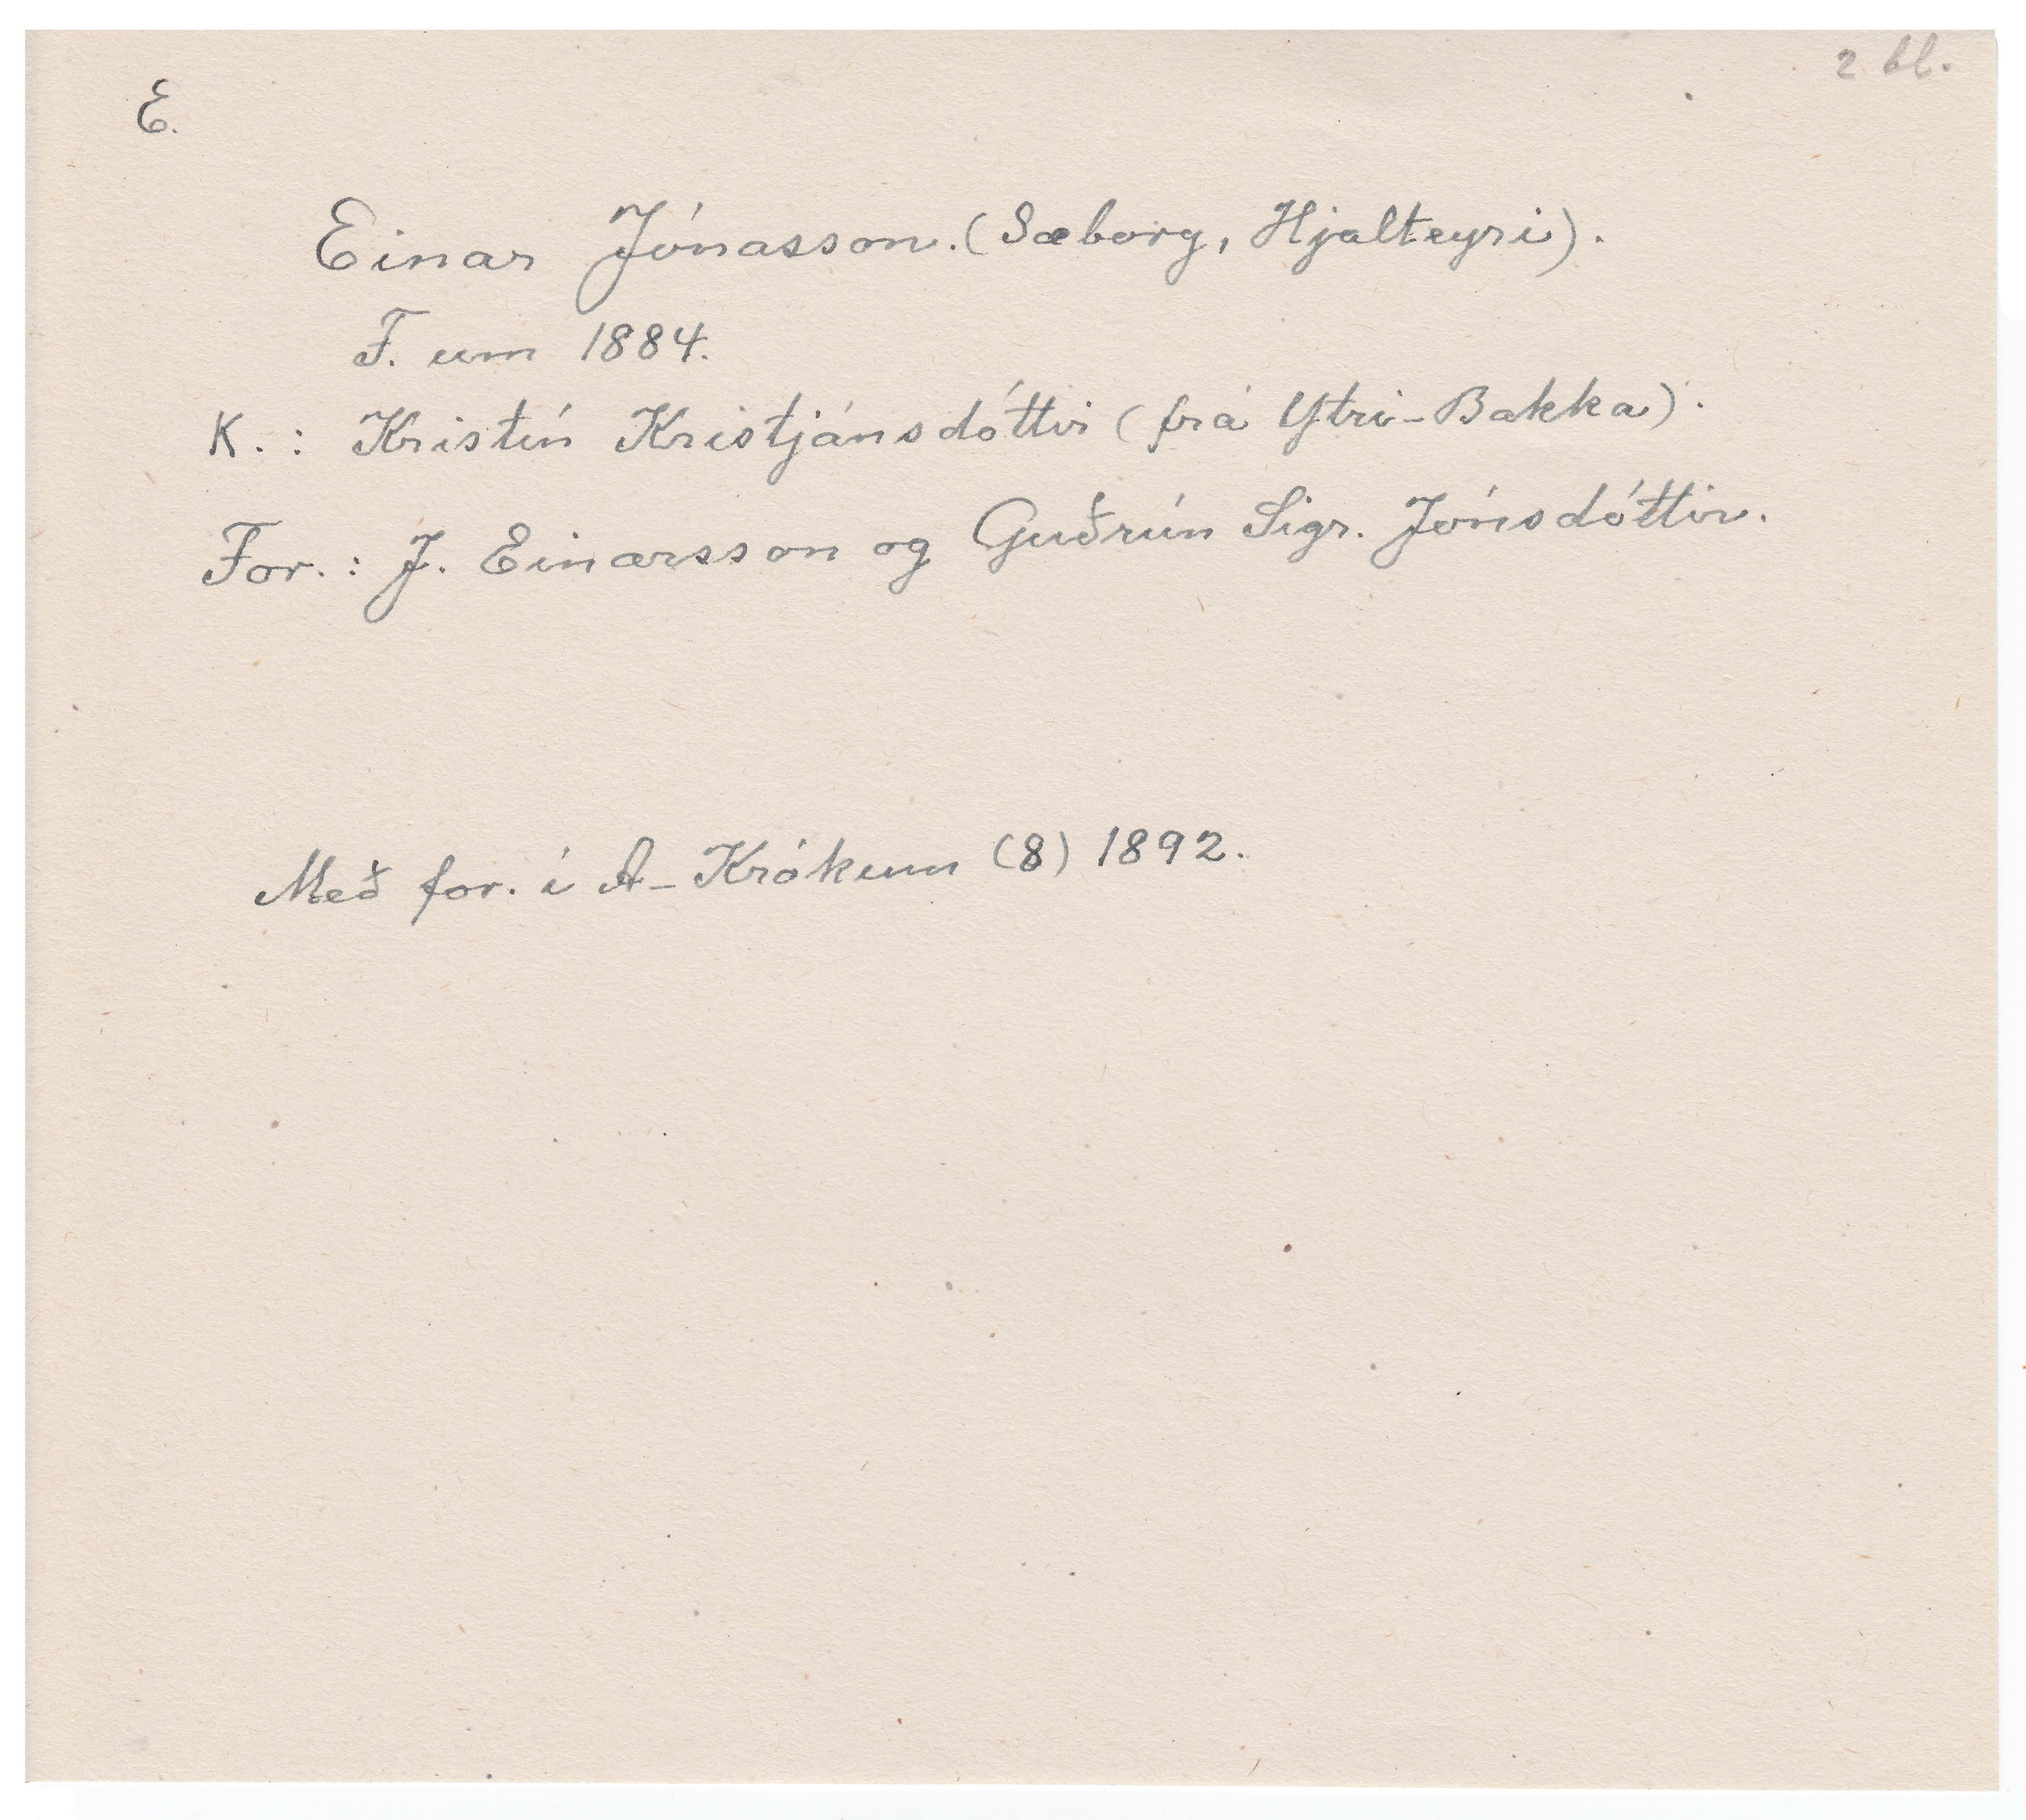 2 bl.
E.
Einar Jónasson. (Sæborg, Hjalteyri).
F. um 1884.
K. : Kristín Kristjánsdóttir (frá Ytri-Bakka).
For. : J. Einarsson og Guðrún Sigr. Jónsdóttir.
Með for. í A-Krókum (8) 1892.